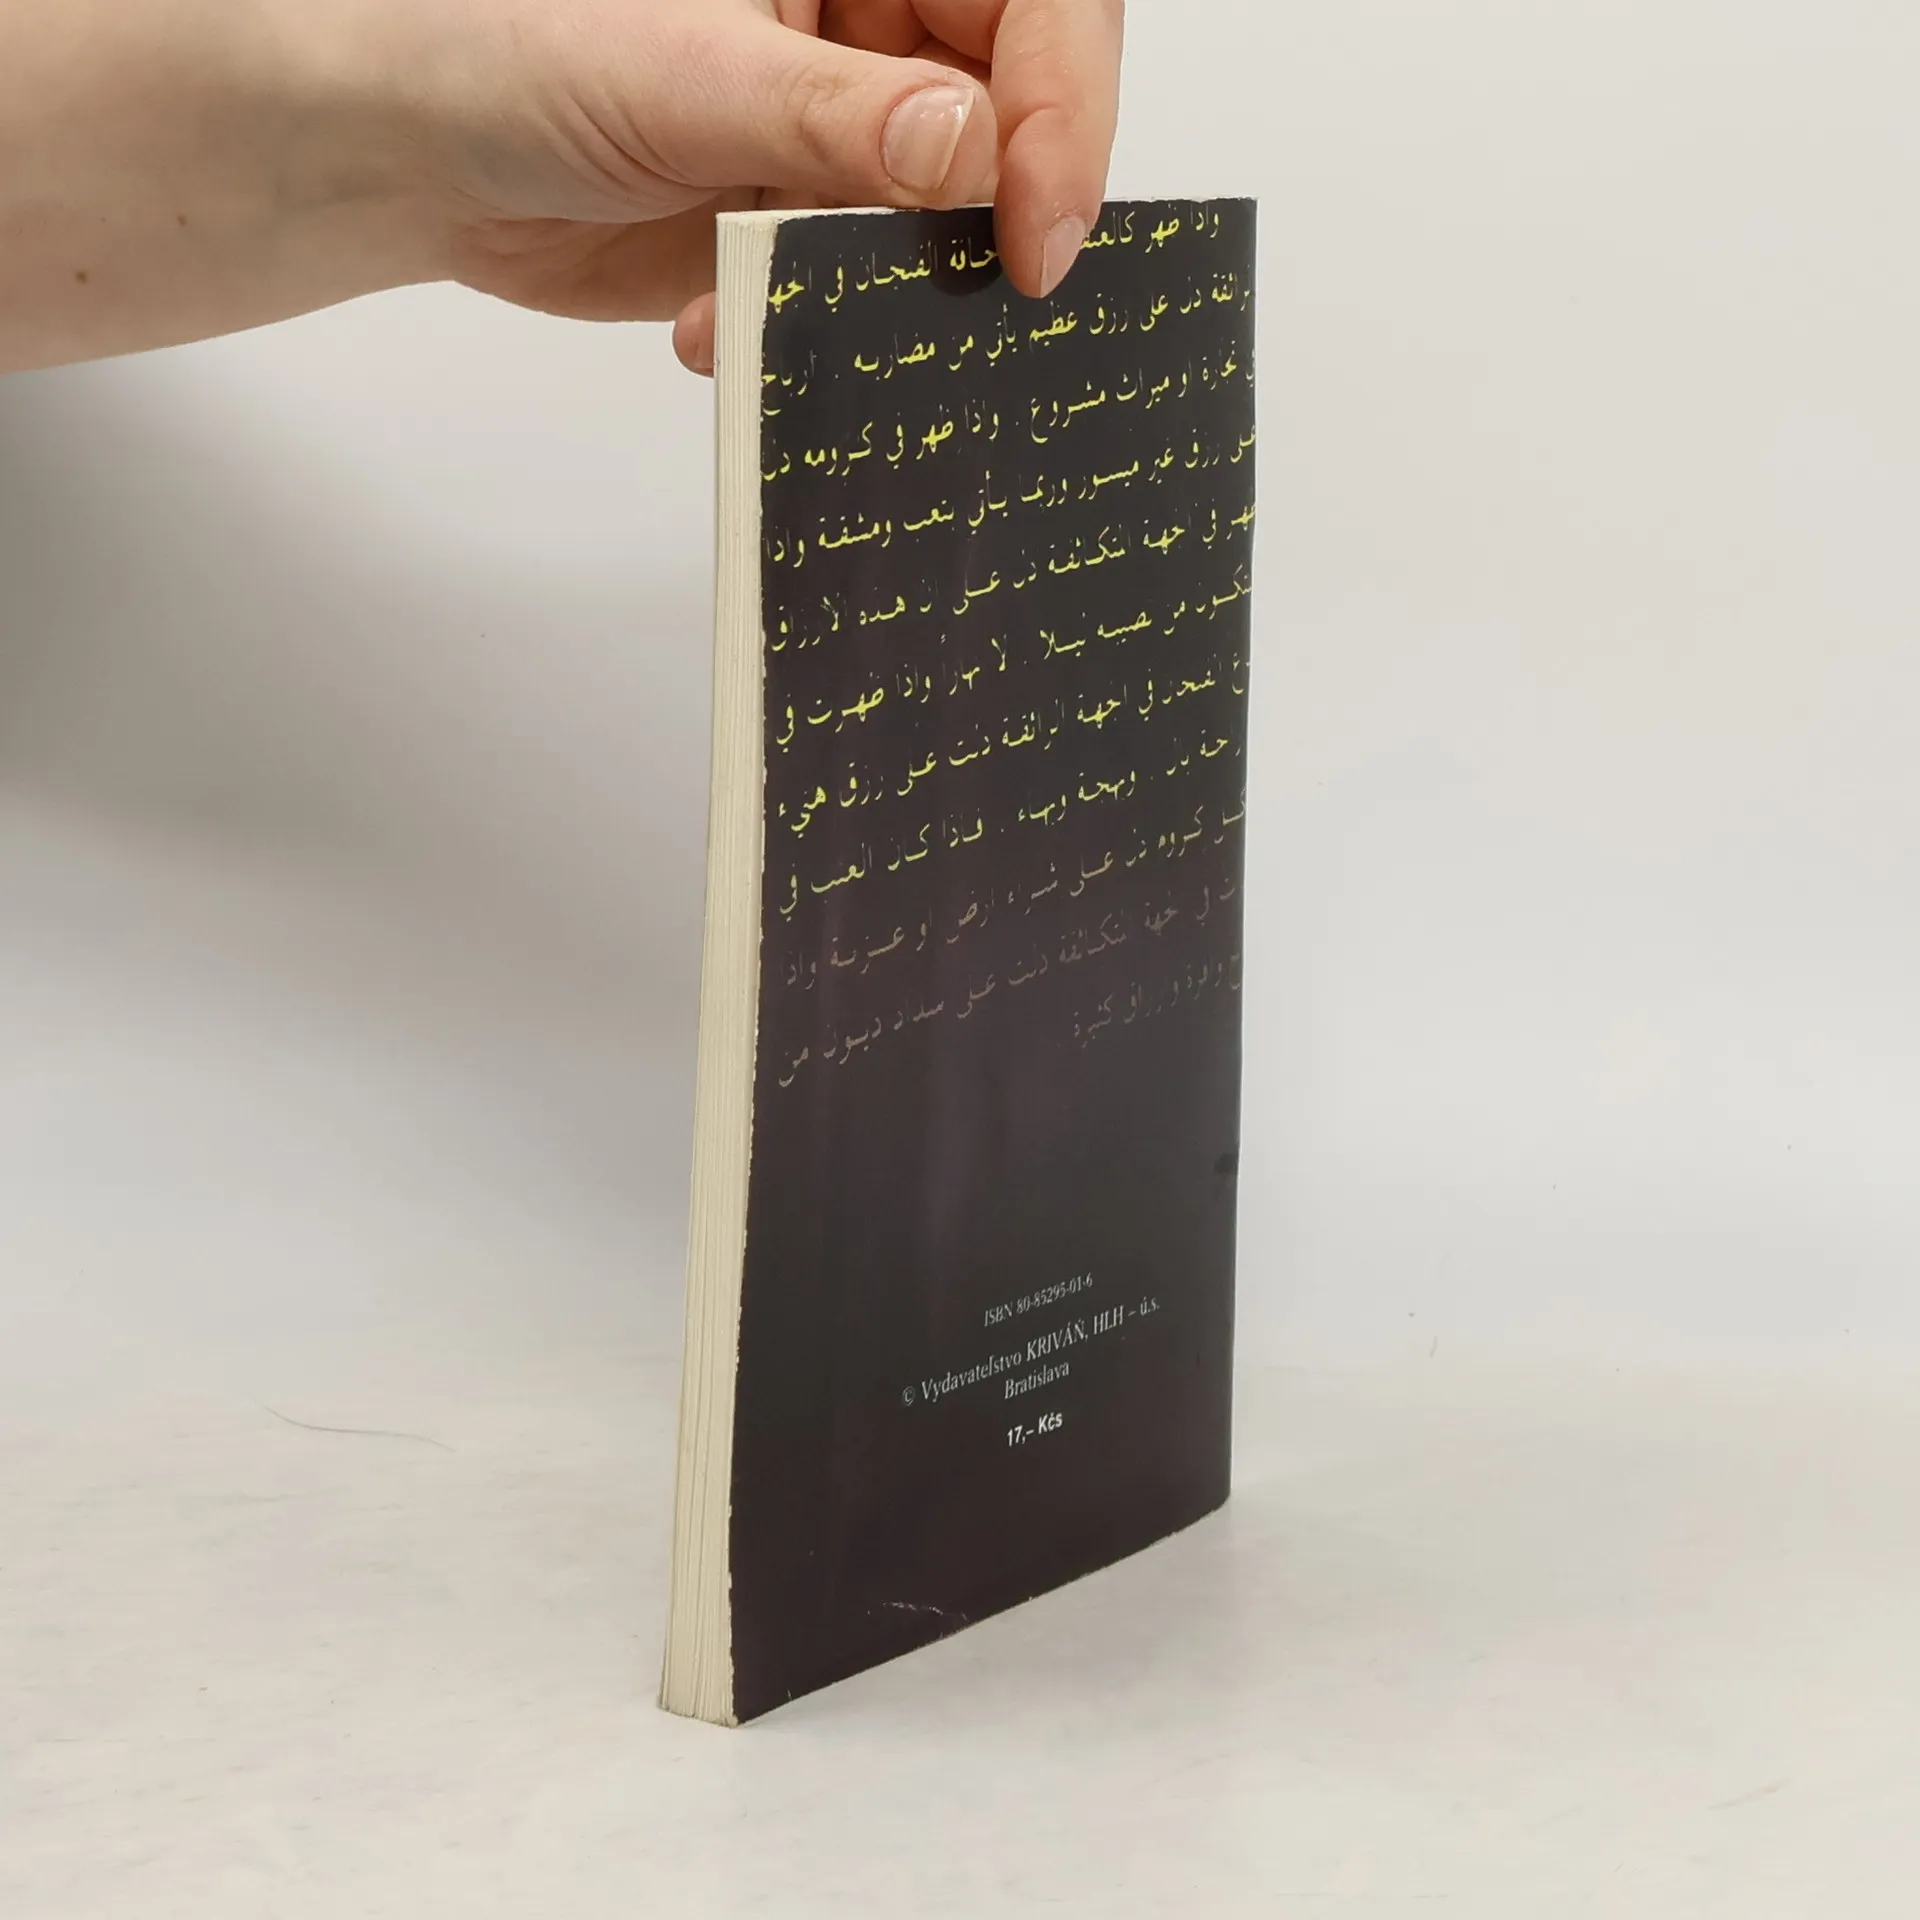 واذا ظهر حافة الفنجان في الجهة
الرائقة دل على رزق عظيم يأتي من مضاربه . ارباح
في تجارة او ميراث مشروع . واذا ظهر في كرومه دل
على رزق غير ميسور وربما يأتي بتعب ومشقة واذا
ظهر في الجهة المتكاثفة دل على ان هذه الارزاق
ستكون من نصيبه ليلا . لا نهاراً واذا ظهرت في
الفنجان في الجهة الرائقة دلت على رزق هنيء
بال . وبهجة وبهاء . فاذا كان العنب في
كروم دل على شراء ارض او عزبة واذا
في الجهة المتكاثفة دلت على سداد ديون من
وافرة وارزاق كثيرة .
ISBN 80-85295-01-6
© Vydavateľstvo KRIVÁŇ, HLH – ú.s.
Bratislava
17,– Kčs